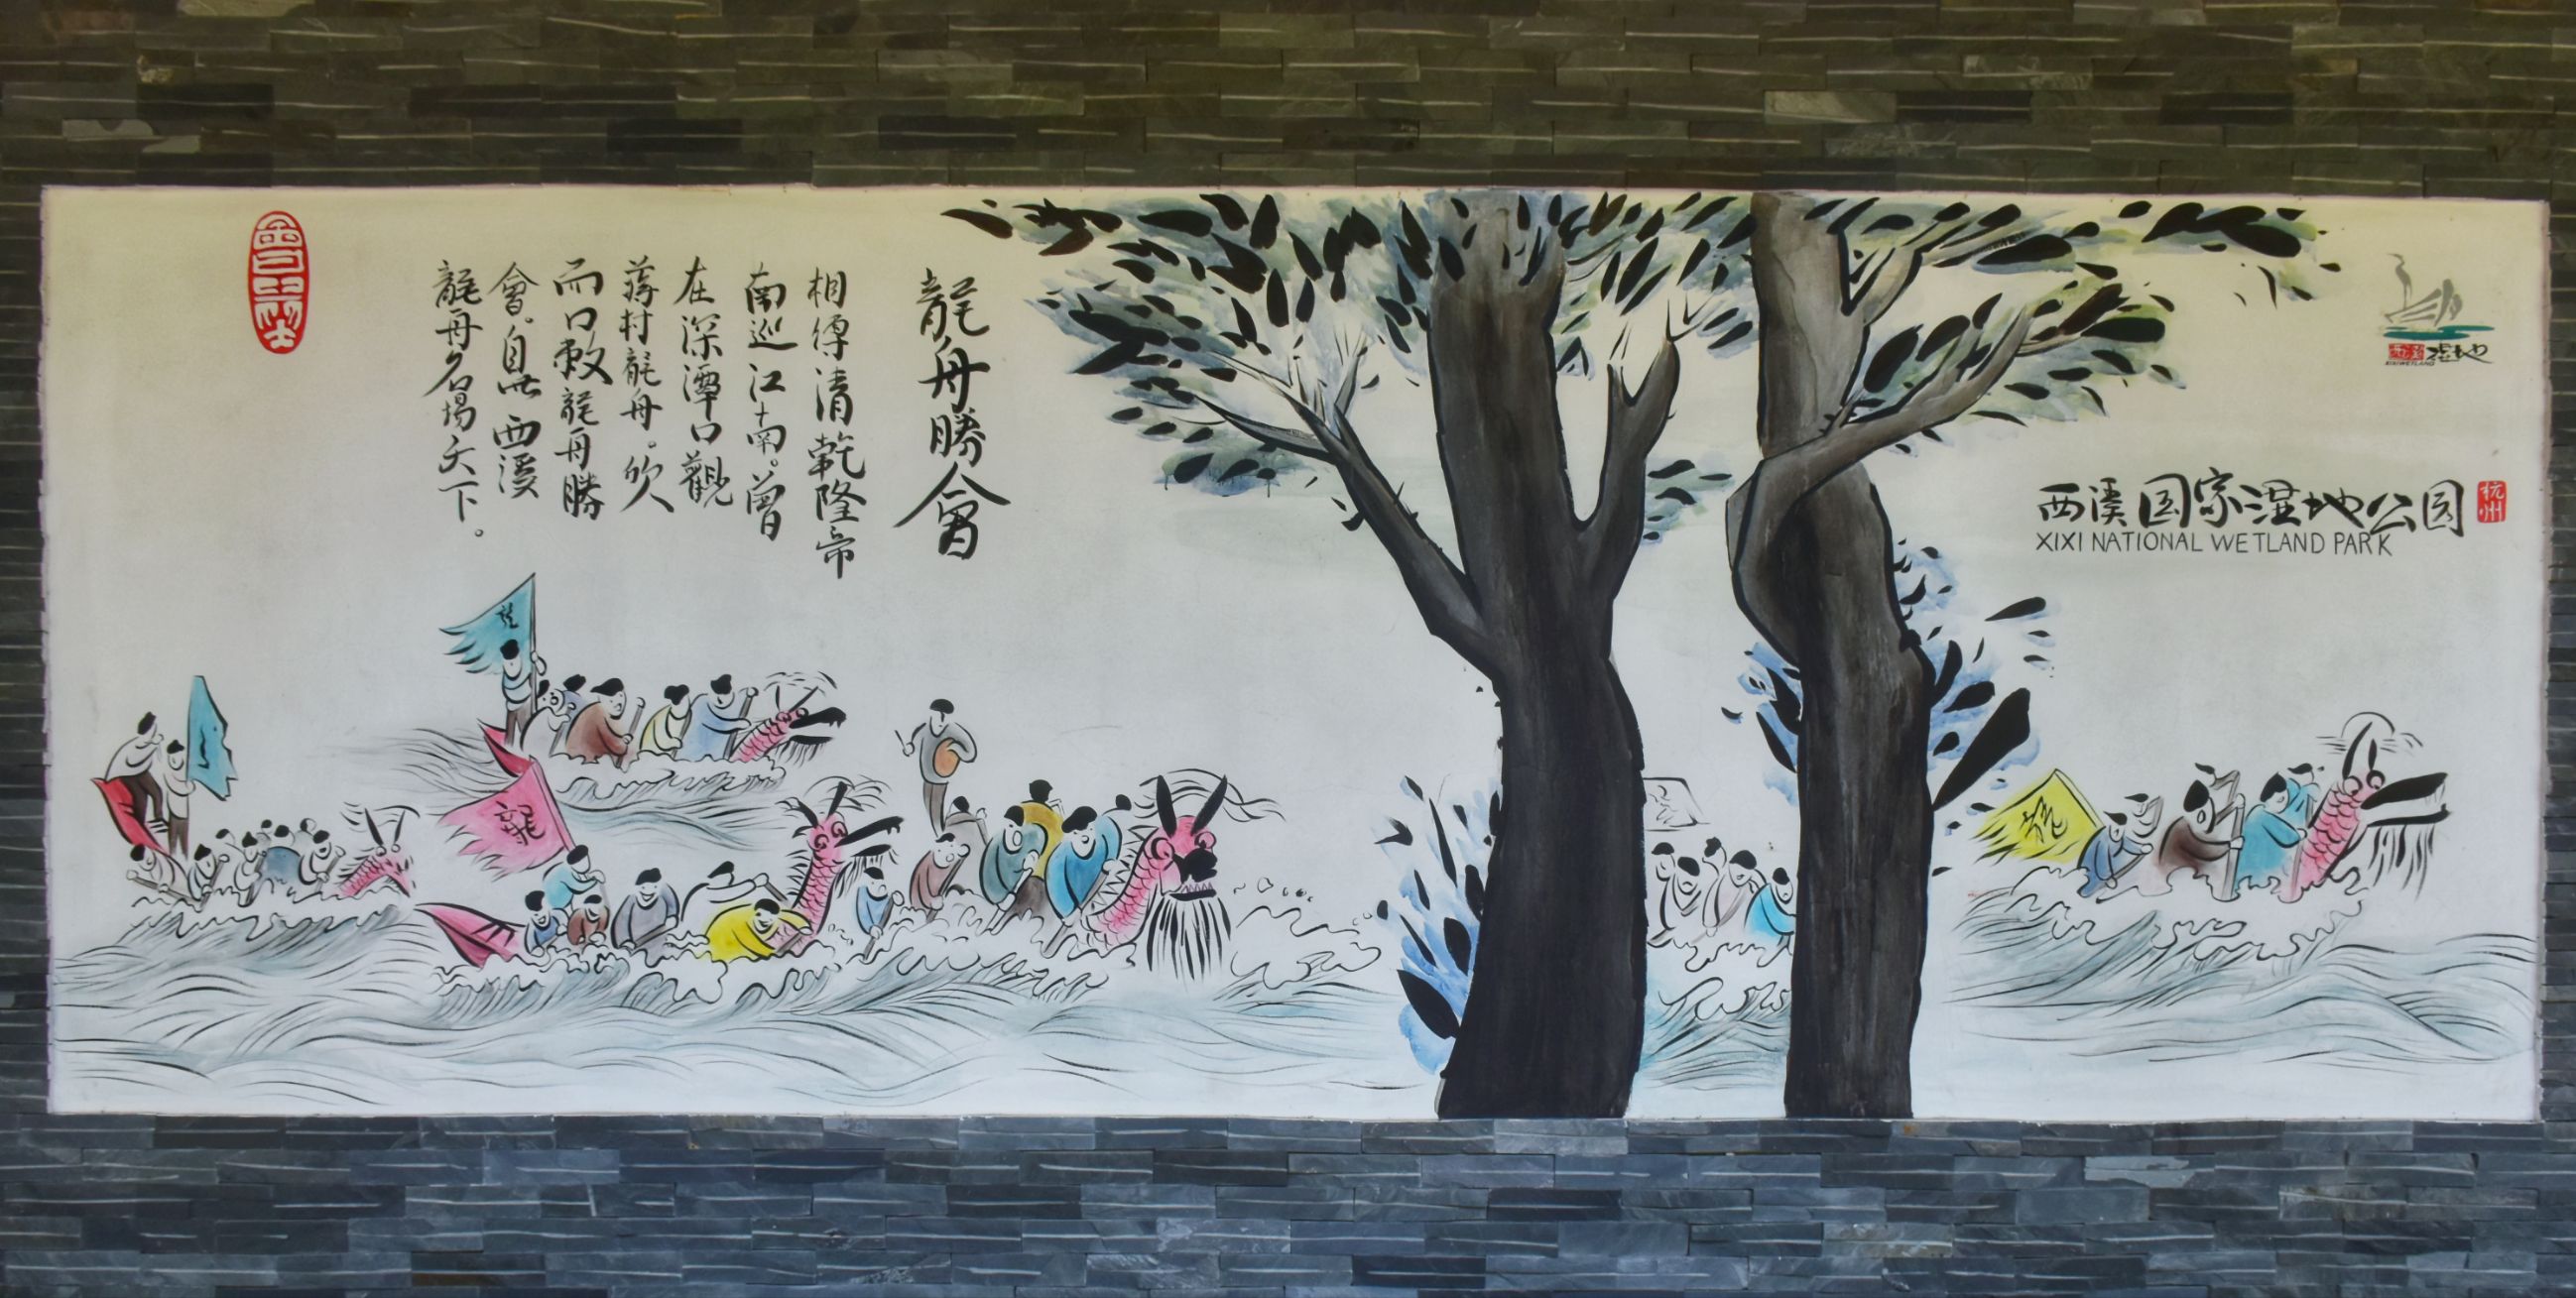 龍舟勝會
相傳清乾隆帝
南巡江南。曾
在深潭口觀
蔣村龍舟。欣
而口敕龍舟勝
會。自此西溪
龍舟名揚天下。
西溪国家湿地公园
杭州
XIXI NATIONAL WETLAND PARK
西溪湿地
XIXIWETLAND
龍
龍
龍